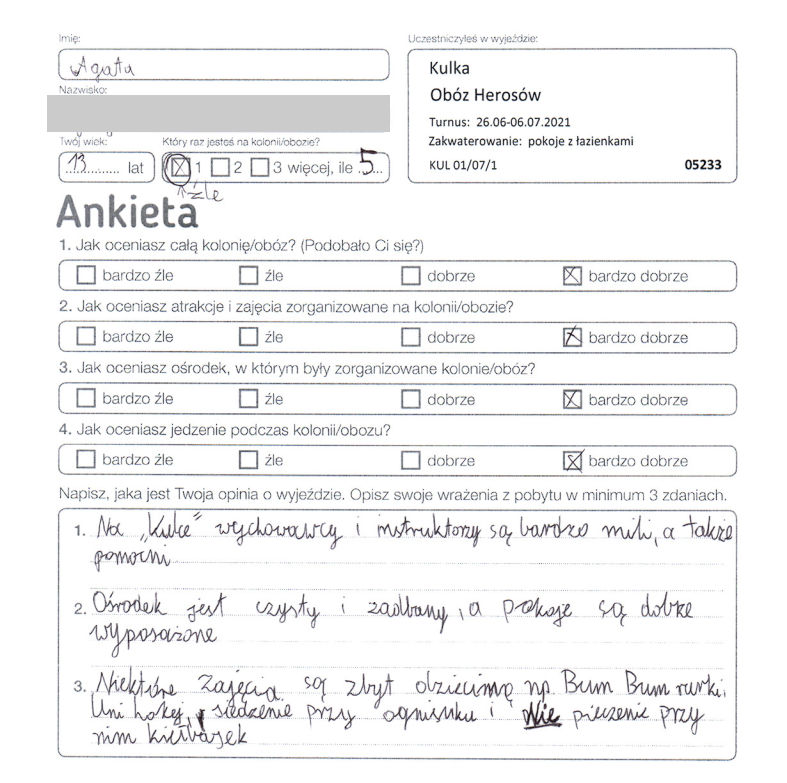 Imię:
Agata
Uczestniczyłeś w wyjeździe:
Kulka
Obóz Herosów
Turnus: 26.06-06.07.2021
Zakwaterowanie: pokoje z łazienkami
KUL 01/07/1 05233
Nazwisko:
Twój wiek:
13 lat
Który raz jesteś na kolonii/obozie?
1 2 3 więcej, ile 5
źle
Ankieta
1. Jak oceniasz całą kolonię/obóz? (Podobało Ci się?)
bardzo źle źle dobrze bardzo dobrze
2. Jak oceniasz atrakcje i zajęcia zorganizowane na kolonii/obozie?
bardzo źle źle dobrze bardzo dobrze
3. Jak oceniasz ośrodek, w którym były zorganizowane kolonie/obóz?
bardzo źle źle dobrze bardzo dobrze
4. Jak oceniasz jedzenie podczas kolonii/obozu?
bardzo źle źle dobrze bardzo dobrze
Napisz, jaka jest Twoja opinia o wyjeździe. Opisz swoje wrażenia z pobytu w minimum 3 zdaniach.
1. Na „Kulce” wychowawcy i instruktorzy są bardzo mili, a także
pomocni
2. Ośrodek jest czysty i zadbany, a pokoje są dobrze
wyposażone
3. Niektóre zajęcia są zbyt dziecinne np. Bum Bum rurki,
Uni hokej, siedzenie przy ognisku i Nie pieczenie przy
nim kiełbasek